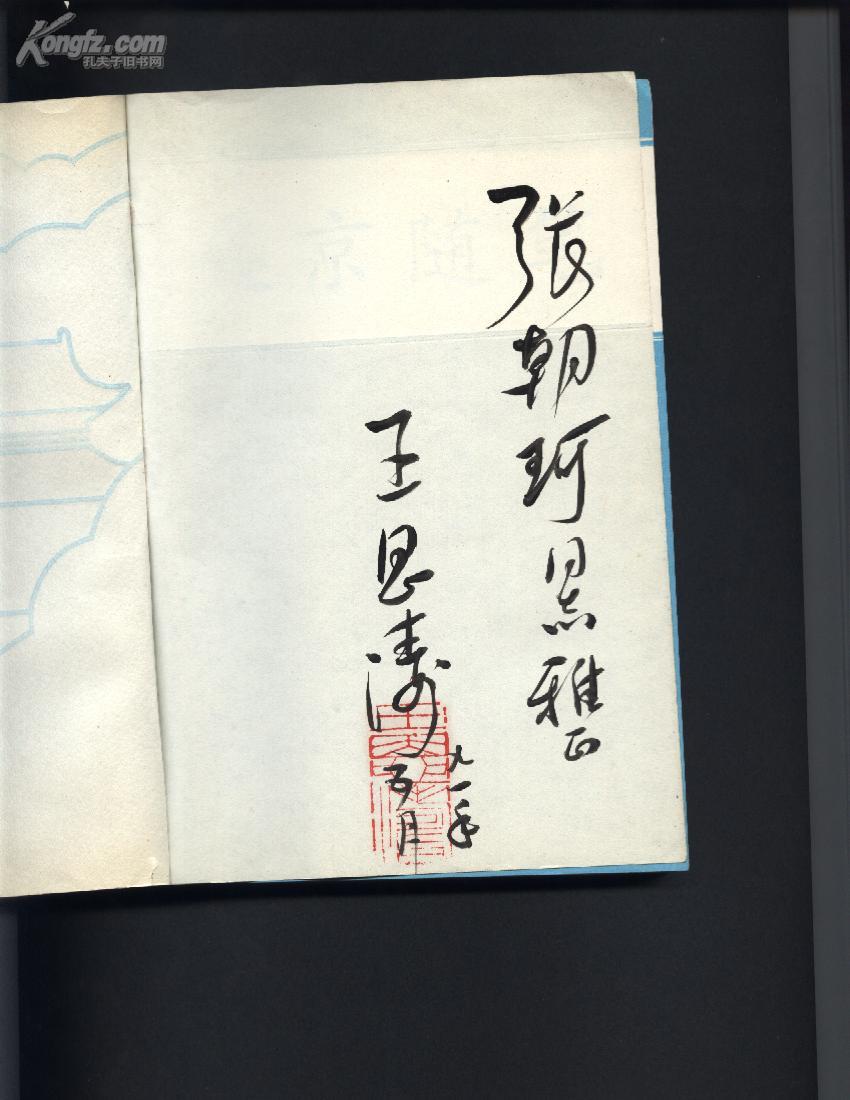 Kongfz.com
孔夫子旧书网
张朝珂同志雅正
王思涛
九一年
五月
京随